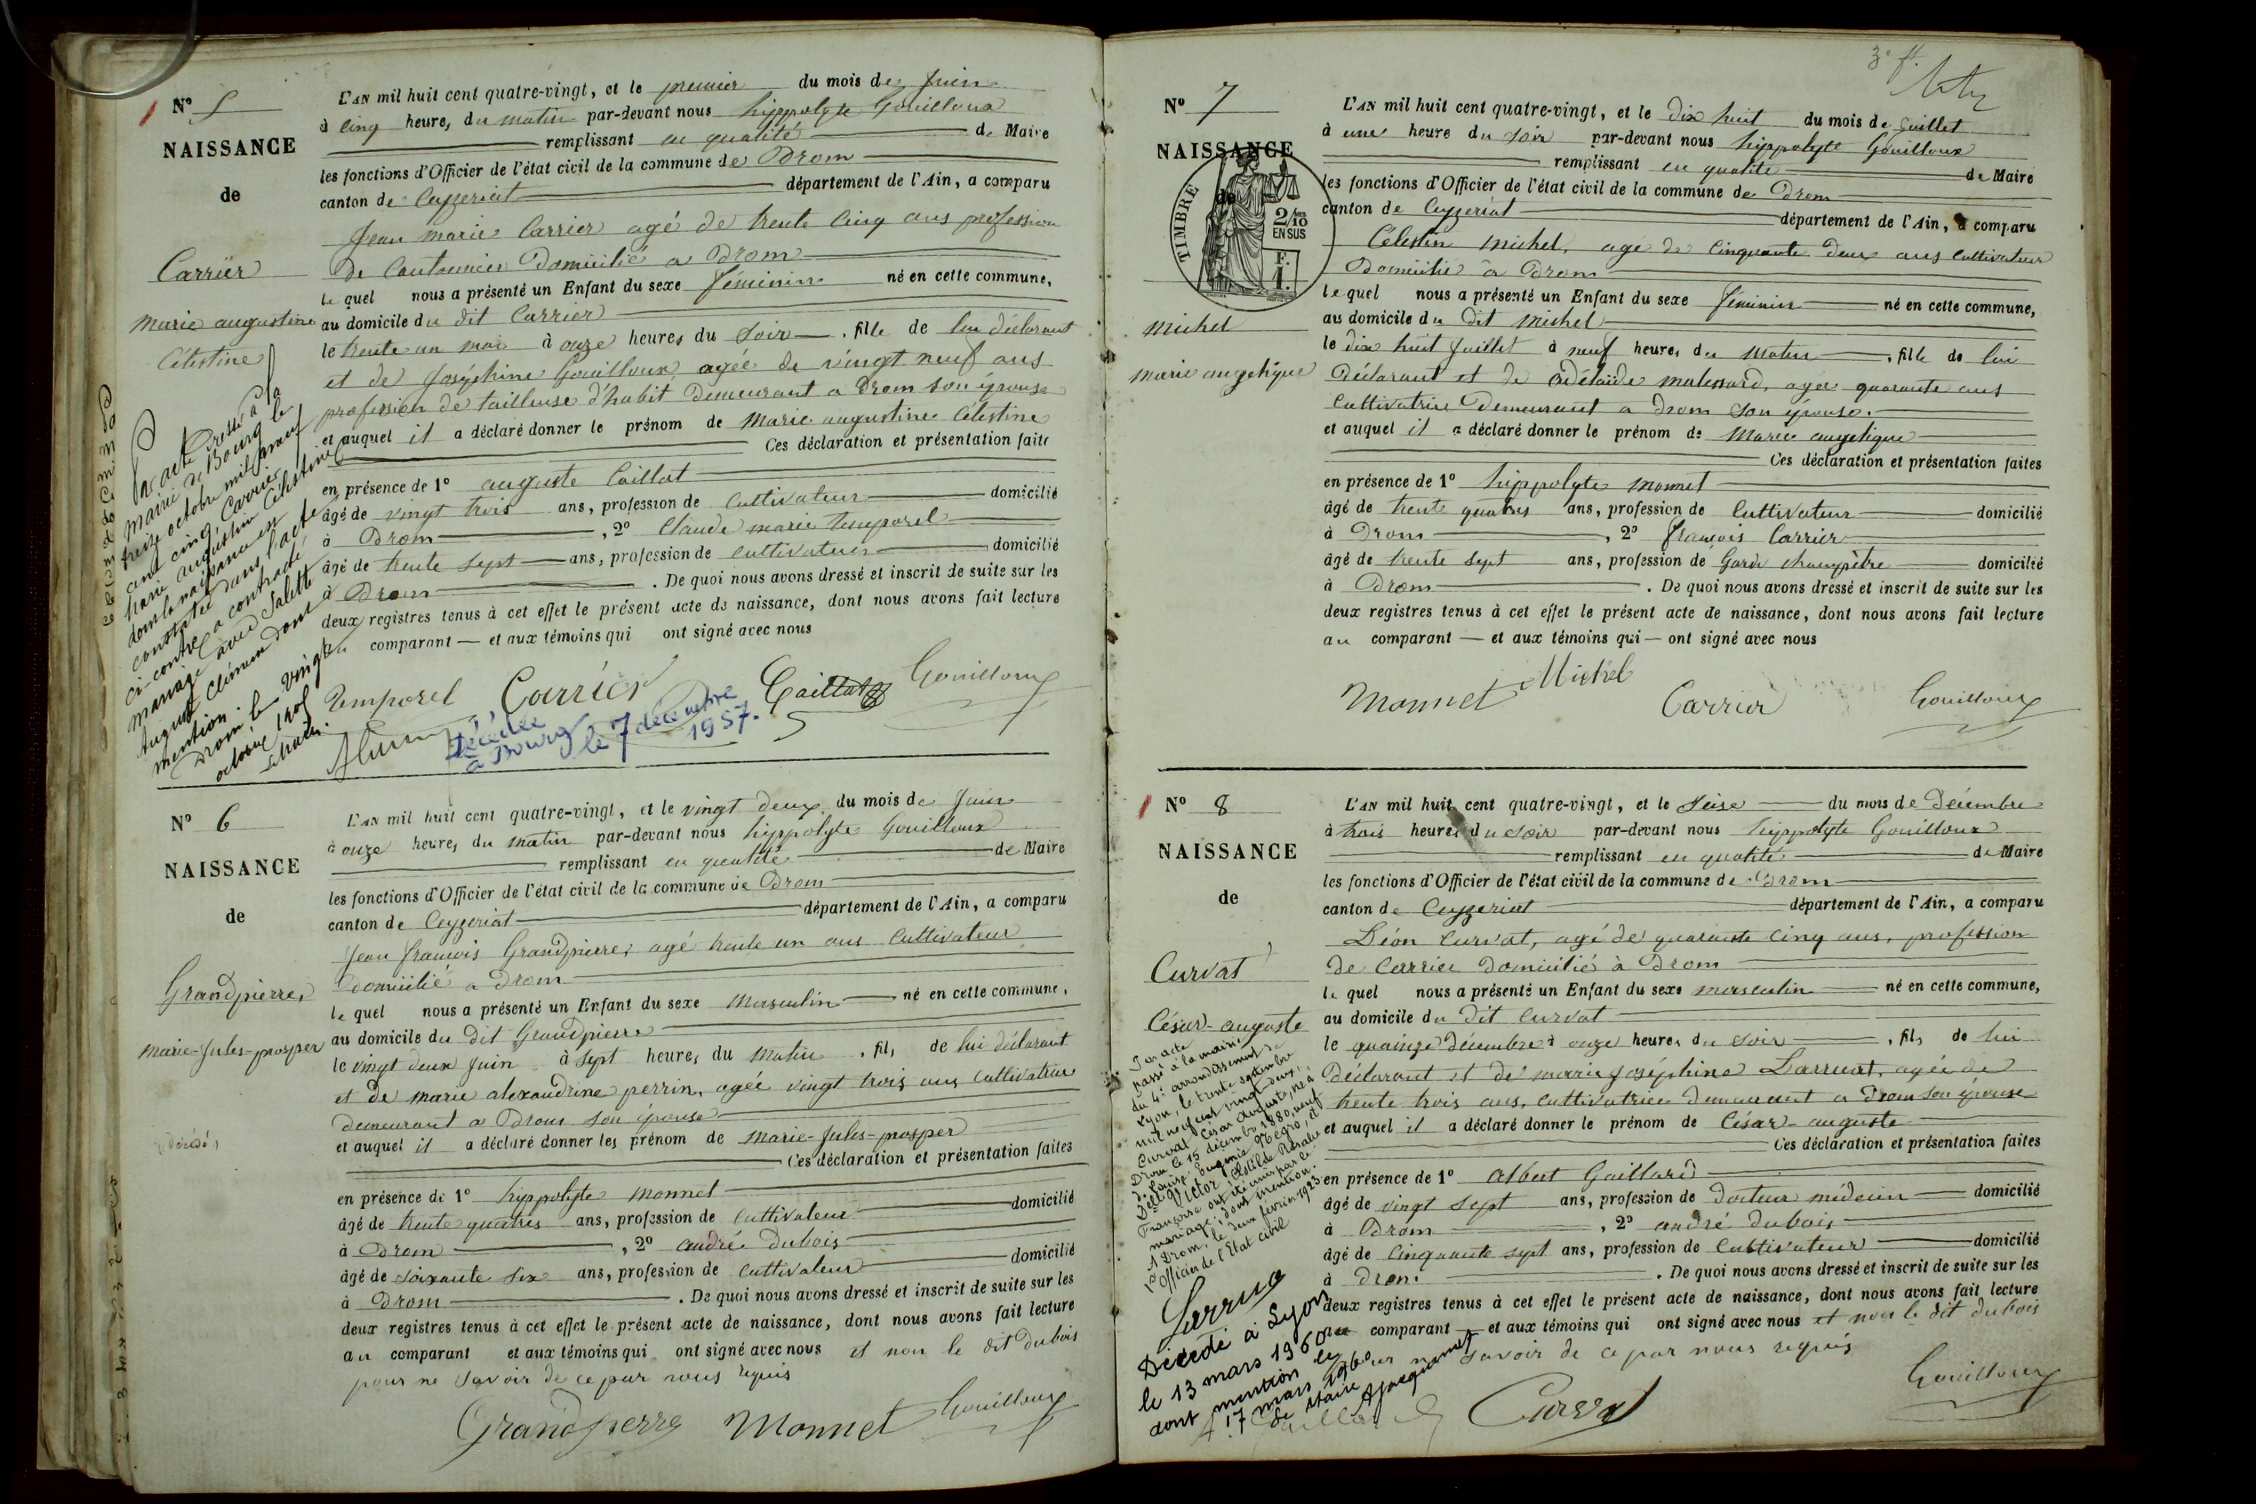 N° 5
NAISSANCE
de
Carrier
marie augustine
Célestine
L'AN mil huit cent quatre-vingt, et le premier du mois de Juin
à cinq heures du matin par-devant nous hyppolyte Gouilloux
remplissant en qualité de Maire
les fonctions d'Officier de l'état civil de la commune de Drom
canton de Ceyzeriat département de l'Ain, a comparu
Jean marie Carrier agé de trente cinq ans profession
de Cantonnier Domicilié a Drom
le quel nous a présenté un Enfant du sexe féminin né en cette commune,
au domicile du dit Carrier
le trente un mai à onze heures du soir, fille de lui déclarant
et de Joséphine Gouilloux agée de vingt neuf ans
profession de tailleuse d'habit Demeurant a Drom son épouse
et auquel il a déclaré donner le prénom de Marie augustine Célestine
Ces déclaration et présentation faite
en présence de 1° auguste Caillat
âgé de vingt trois ans, profession de Cultivateur domicilié
à Drom, 2° Claude marie temporel
âgé de trente sept ans, profession de cultivateur domicilié
à Drom. De quoi nous avons dressé et inscrit de suite sur les
deux registres tenus à cet effet le présent acte de naissance, dont nous avons fait lecture
au comparant et aux témoins qui ont signé avec nous
Temporel Carrier Caillat Gouilloux
Par acte dressé à la
mairie de Bourg le
treize octobre mil neuf
cent cinq Carrier
Marie augustine Célestine
dont la naissance est
constatée dans l'acte
ci-contre a contracté
mariage avec Salette
August Clément dont
mention.
Drom le vingt
octobre 1905
Décédée
à Bourg
le 7 décembre
1957.
N° 6
NAISSANCE
de
Grandpierre
marie-Jules-prosper
décédé
L'AN mil huit cent quatre-vingt, et le vingt deux du mois de Juin
à onze heures du matin par-devant nous hyppolyte Gouilloux
remplissant en qualité de Maire
les fonctions d'Officier de l'état civil de la commune de Drom
canton de Ceyzeriat département de l'Ain, a comparu
Jean francois Grandpierre, agé trente un ans Cultivateur
domicilié a Drom
le quel nous a présenté un Enfant du sexe Masculin né en cette commune,
au domicile du dit Grandpierre
le vingt deux Juin à sept heures du matin, fils de lui déclarant
et de marie alexandrine perrin, agée vingt trois ans Cultivatrice
demeurant a Drom son épouse
et auquel il a déclaré donner les prénom de Marie-Jules-prosper
Ces déclaration et présentation faites
en présence de 1° hyppolyte Monnet
âgé de trente quatres ans, profession de Cultivateur domicilié
à Drom, 2° andré Dubois
âgé de soixante six ans, profession de Cultivateur domicilié
à Drom. De quoi nous avons dressé et inscrit de suite sur les
deux registres tenus à cet effet le présent acte de naissance, dont nous avons fait lecture
au comparant et aux témoins qui ont signé avec nous et non le dit dubois
pour ne savoir de ce par nous requis
Grandpierre Monnet Gouilloux
3e f.
N° 7
NAISSANCE
de
TIMBRE
2/10 EN SUS
F.
1.
michel
marie angelique
L'AN mil huit cent quatre-vingt, et le dix huit du mois de Juillet
à une heure du soir par-devant nous hyppolyte Gouilloux
remplissant en qualité de Maire
les fonctions d'Officier de l'état civil de la commune de Drom
canton de Ceyzeriat département de l'Ain, a comparu
Célestin Michel, agé de cinquante deux ans cultivateur
Domicilié à Drom
le quel nous a présenté un Enfant du sexe féminin né en cette commune,
au domicile du dit Michel
le dix huit Juillet à neuf heures du Matin, fille de lui
Déclarant et de adélaïde malessard, agée quarante ans
Cultivatrice Demeurant a Drom son épouse.
et auquel il a déclaré donner le prénom de Marie angelique
Ces déclaration et présentation faites
en présence de 1° hyppolyte Monnet
âgé de trente quatres ans, profession de Cultivateur domicilié
à Drom, 2° françois Carrier
âgé de trente sept ans, profession de Garde champêtre domicilié
à Drom. De quoi nous avons dressé et inscrit de suite sur les
deux registres tenus à cet effet le présent acte de naissance, dont nous avons fait lecture
au comparant et aux témoins qui ont signé avec nous
Monnet Michel Carrier Gouilloux
N° 8
NAISSANCE
de
Curvat
César-auguste
L'AN mil huit cent quatre-vingt, et le Seise du mois de Décembre
à trois heures du soir par-devant nous hyppolyte Gouilloux
remplissant en qualité de Maire
les fonctions d'Officier de l'état civil de la commune de Drom
canton de Ceyzeriat département de l'Ain, a comparu
Léon Curvat, agé de quarante cinq ans, profession
de Carrier domicilié à Drom
le quel nous a présenté un Enfant du sexe masculin né en cette commune,
au domicile du dit Curvat
le quainze décembre à onze heures du soir, fils de lui
Déclarant et de marie Joséphine Larruat, agée de
trente trois ans, cultivatrice demeurant a Drom son épouse
et auquel il a déclaré donner le prénom de César-auguste
Ces déclaration et présentation faites
en présence de 1° Albert Gaillard
âgé de vingt sept ans, profession de docteur médecin domicilié
à Drom, 2° andré dubois
âgé de cinquante sept ans, profession de Cultivateur domicilié
à drom. De quoi nous avons dressé et inscrit de suite sur les
deux registres tenus à cet effet le présent acte de naissance, dont nous avons fait lecture
au comparant et aux témoins qui ont signé avec nous et non le dit dubois
pour ne savoir de ce par nous requis
Gaillard Curvat Gouilloux
Par acte
passé à la mairie
du 4e arrondissement de
Lyon, le trente septembre
mil neuf cent vingt deux,
Curvat César Auguste, né à
Drom le 15 décembre 1880, veuf
de Louise Eugénie Negro, et
Delle Victor Clotilde Rosalie
Françoise ont été unis par le
mariage; dont mention.
A Drom, le deux février 1923
L'Officier de l'Etat civil
Décédé à Lyon
le 13 mars 1960
dont mention le
17 mars 1960
Le Maire